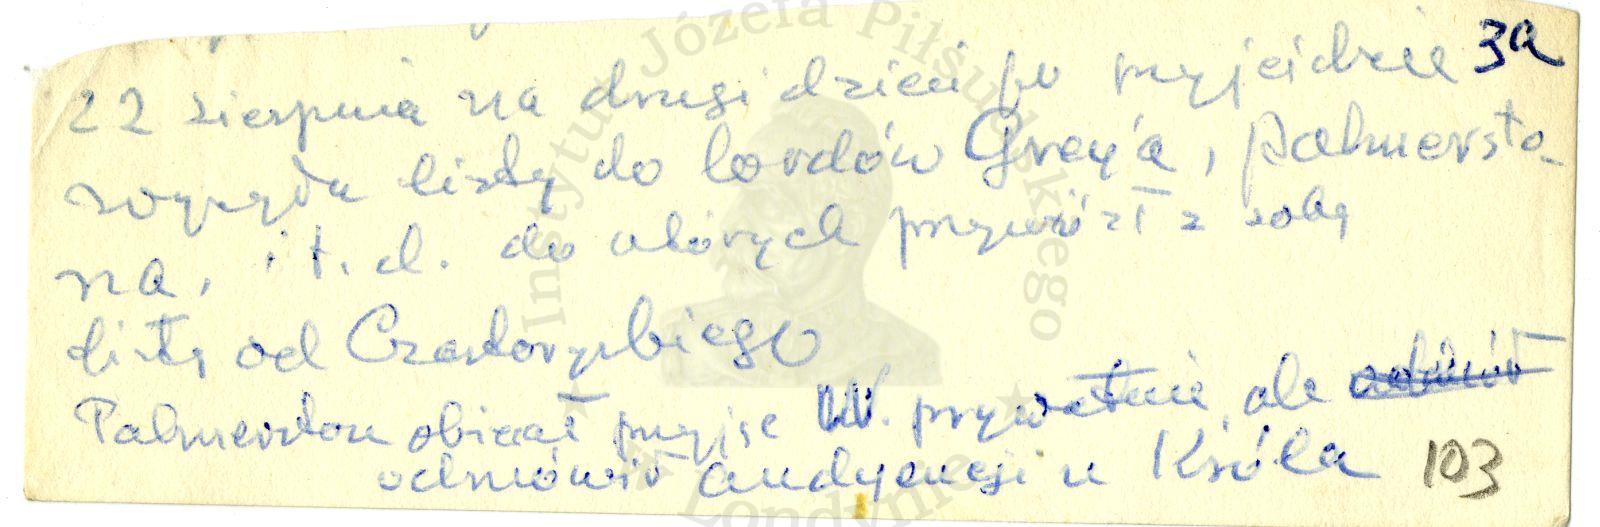 3a
22 sierpnia na drugi dzień po przyjeździe
wysyła listy do lordów Grey'a, Palmersto-
na, i t.d. do których przywiózł z sobą
listy od Czartoryskiego
Palmerston obiecał przyjąć W. prywatnie, ale
odmówił audyencji u Króla
103
Instytut Józefa Piłsudskiego
w Londynie